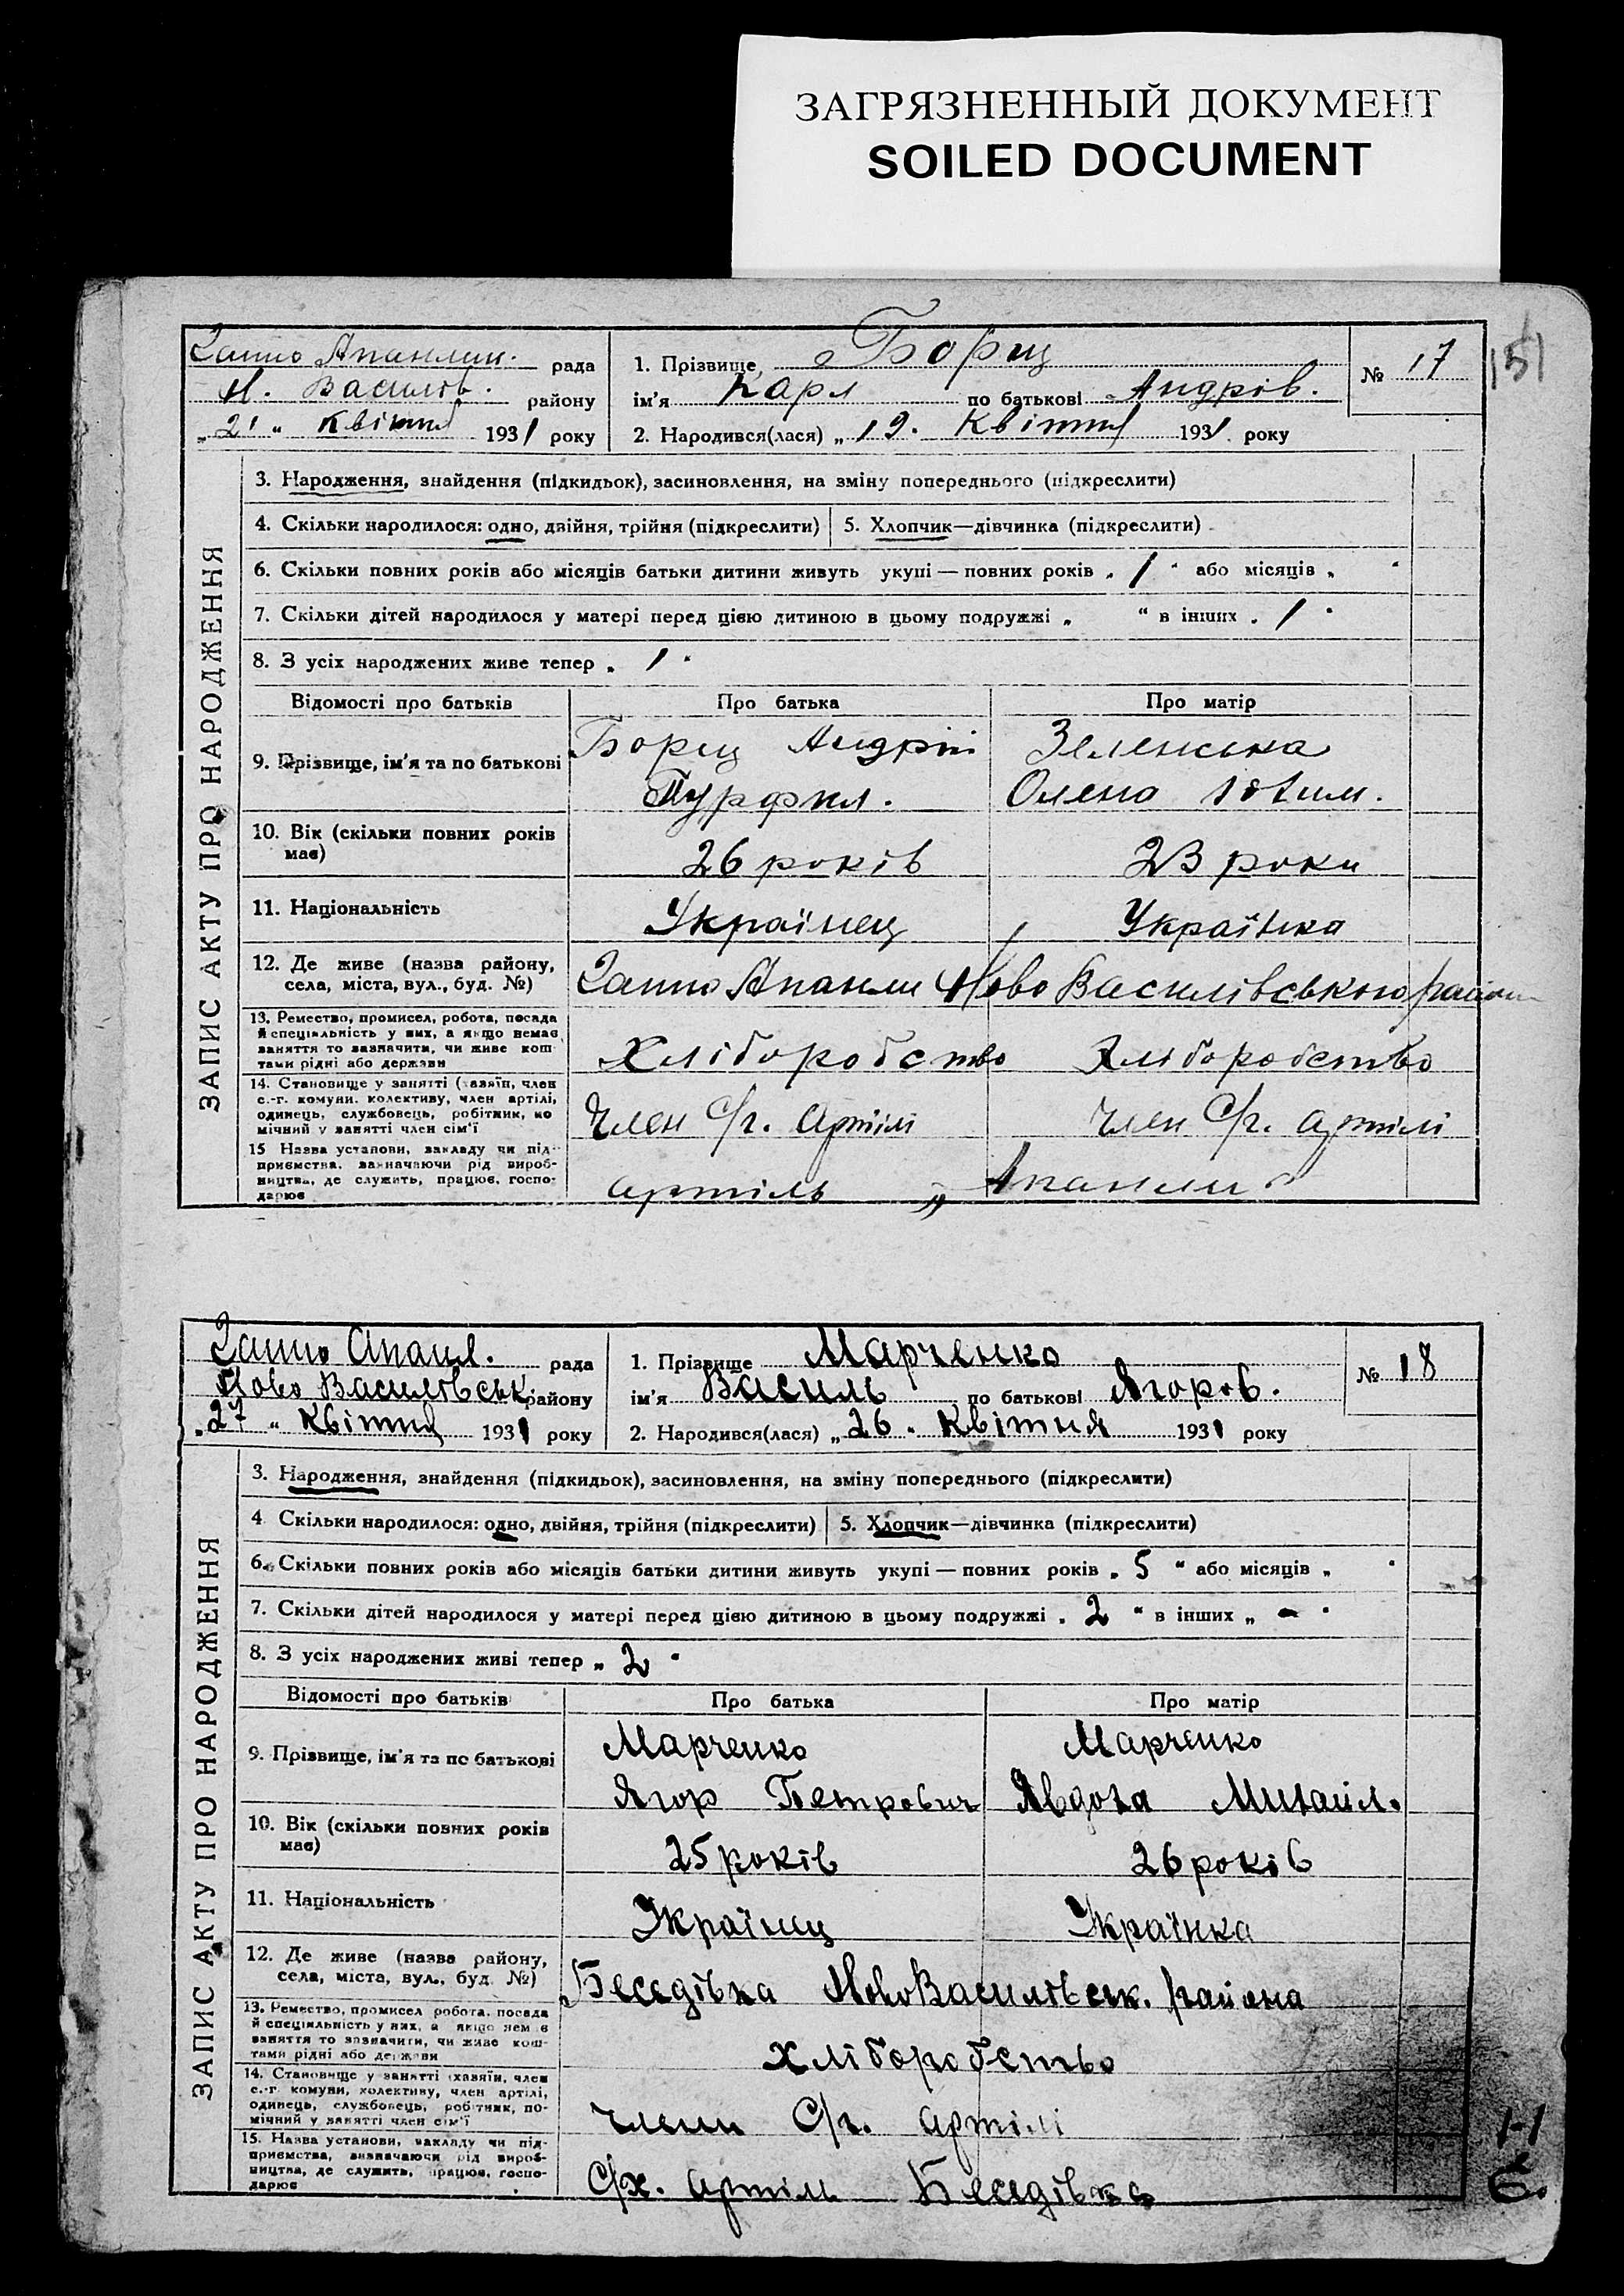 ЗАГРЯЗНЕННЫЙ ДОКУМЕНТ
SOILED DOCUMENT
151
рада
Н. Василів. району
„21“ Квітня 1931 року
1. Прізвище Борщ
ім'я Карл по батькові Андрів.
2. Народився(лася) „19. Квітня 1931 року
№ 17
ЗАПИС АКТУ ПРО НАРОДЖЕННЯ
3. Народження, знайдення (підкидьок), засиновлення, на зміну попереднього (підкреслити)
4. Скільки народилося: одно, двійня, трійня (підкреслити) 5. Хлопчик—дівчинка (підкреслити)
6. Скільки повних років або місяців батьки дитини живуть укупі — повних років „1“ або місяців „ “
7. Скільки дітей народилося у матері перед цією дитиною в цьому подружжі „ “ в інших „1“
8. З усіх народжених живе тепер „1“
Відомості про батьків Про батька Про матір
9. Прізвище, ім'я та по батькові Борщ Андрій Зеленська
Олена
10. Вік (скільки повних років має) 26 років 23 роки
11. Національність Українец Українка
12. Де живе (назва району, села, міста, вул., буд. №) Ново Василівського район
13. Ремество, промисел, робота, посада й спеціяльність у них, а якщо немає заняття то зазначити, чи живе коштами рідні або держави Хліборобство Хліборобство
14. Становище у занятті (хазяїн, член с.-г. комуни, колективу, член артілі, одинець, службовець, робітник, помічний у занятті член сім'ї Член С/г. артілі Член С/г. артілі
15 Назва установи, закладу чи підприємства, зазначаючи рід виробництва, де служить, працює, господарює артіль „
рада
Ново Василівськ району
„27“ Квітня 1931 року
1. Прізвище Марченко
ім'я Василь по батькові Ягоров.
2. Народився(лася) „26. Квітня 1931 року
№ 18
ЗАПИС АКТУ ПРО НАРОДЖЕННЯ
3. Народження, знайдення (підкидьок), засиновлення, на зміну попереднього (підкреслити)
4 Скільки народилося: одно, двійня, трійня (підкреслити) 5. Хлопчик—дівчинка (підкреслити)
6. Скільки повних років або місяців батьки дитини живуть укупі — повних років „5“ або місяців „ “
7. Скільки дітей народилося у матері перед цією дитиною в цьому подружжі „2“ в інших „-“
8. З усіх народжених живі тепер „2“
Відомості про батьків Про батька Про матір
9. Прізвище, ім'я та по батькові Марченко Марченко
Ягор Петрович Явдоха Михаил.
10. Вік (скільки повних років має) 25 років 26 років
11. Національність Українец Українка
12. Де живе (назва району, села, міста, вул., буд. №) Беседівка НовоВасилівськ. района
13. Ремество, промисел робота, посада й спеціяльність у них, а якщо немає заняття то зазначити, чи живе коштами рідні або держави хліборобство
14. Становище у занятті (хазяїн, член с.-г. комуни, колективу, член артілі, одинець, службовець, робітник, помічний у занятті член сім'ї члени С/г. артілі
15. Назва установи, закладу чи підприємства, зазначаючи рід виробництва, де служить, працює, господарює С/х. артіль Беседівка